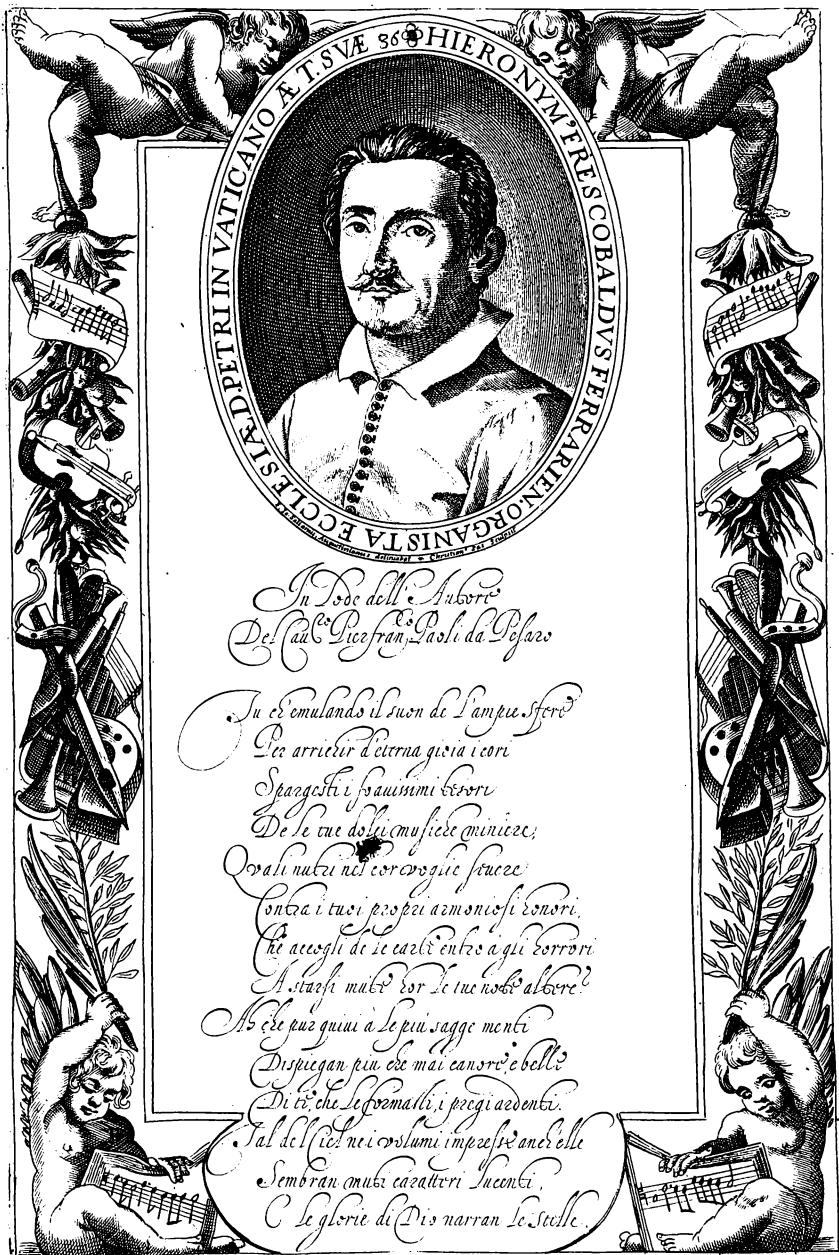 HIERONYM' FRESCOBALDVS FERRARIEN. ORGANISTA ECCLESIÆ D. PETRI IN VATICANO ÆT. SVÆ 36
Io. Salianus Augustinianus delineabat Christian' Sas Sculpsit
In Lode dell'Autore
Del Caulo Pierfranco Paoli da Pesaro
Tu ch'emulando il suon de l'ampie sfere
Per arrichir d'eterna gioia i cori
Spargesti i soauissimi tesori
De le tue dolci musiche miniere;
Quali nutri nel cor voglie seuere
Contra i tuoi propri armoniosi honori,
Che accogli de le carte entro à gli horrori
A starsi mute hor le tue note altere?
Ah che pur quiui à le più sagge menti
Dispiegan piu che mai canore, e belle
Di te, che le formasti, i pregi ardenti.
Tal del Ciel nei volumi impresse anch'elle
Sembran muti caratteri lucenti,
E le glorie di Dio narran le stelle.